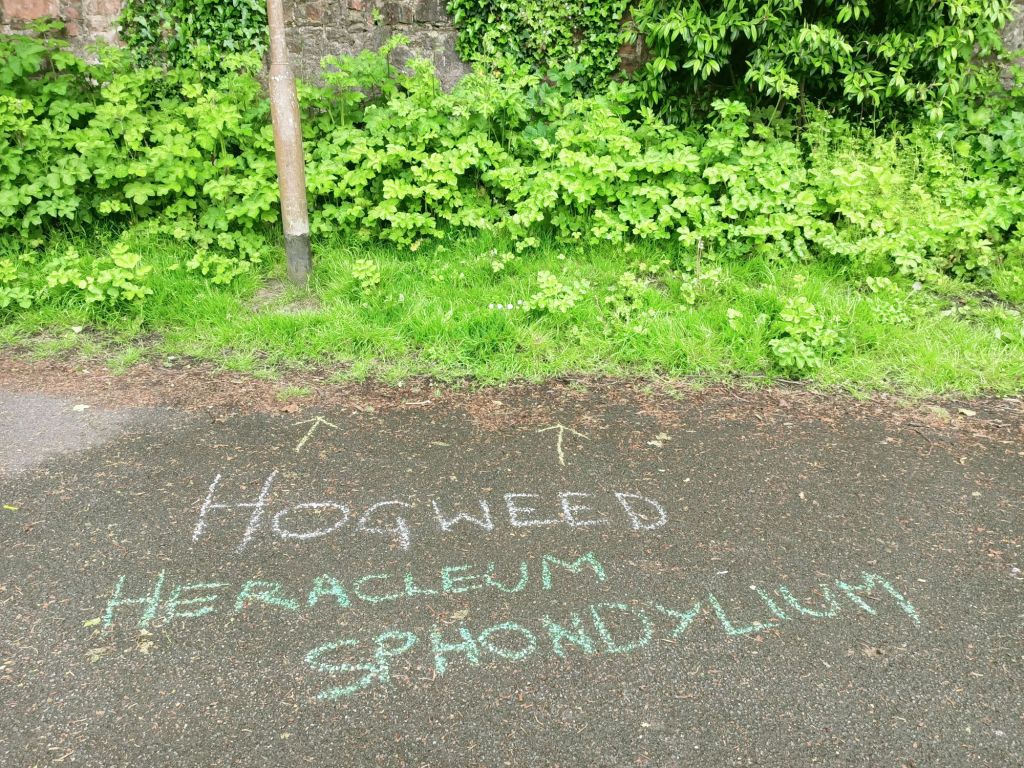 HOGWEED
HERACLEUM
SPHONDYLIUM